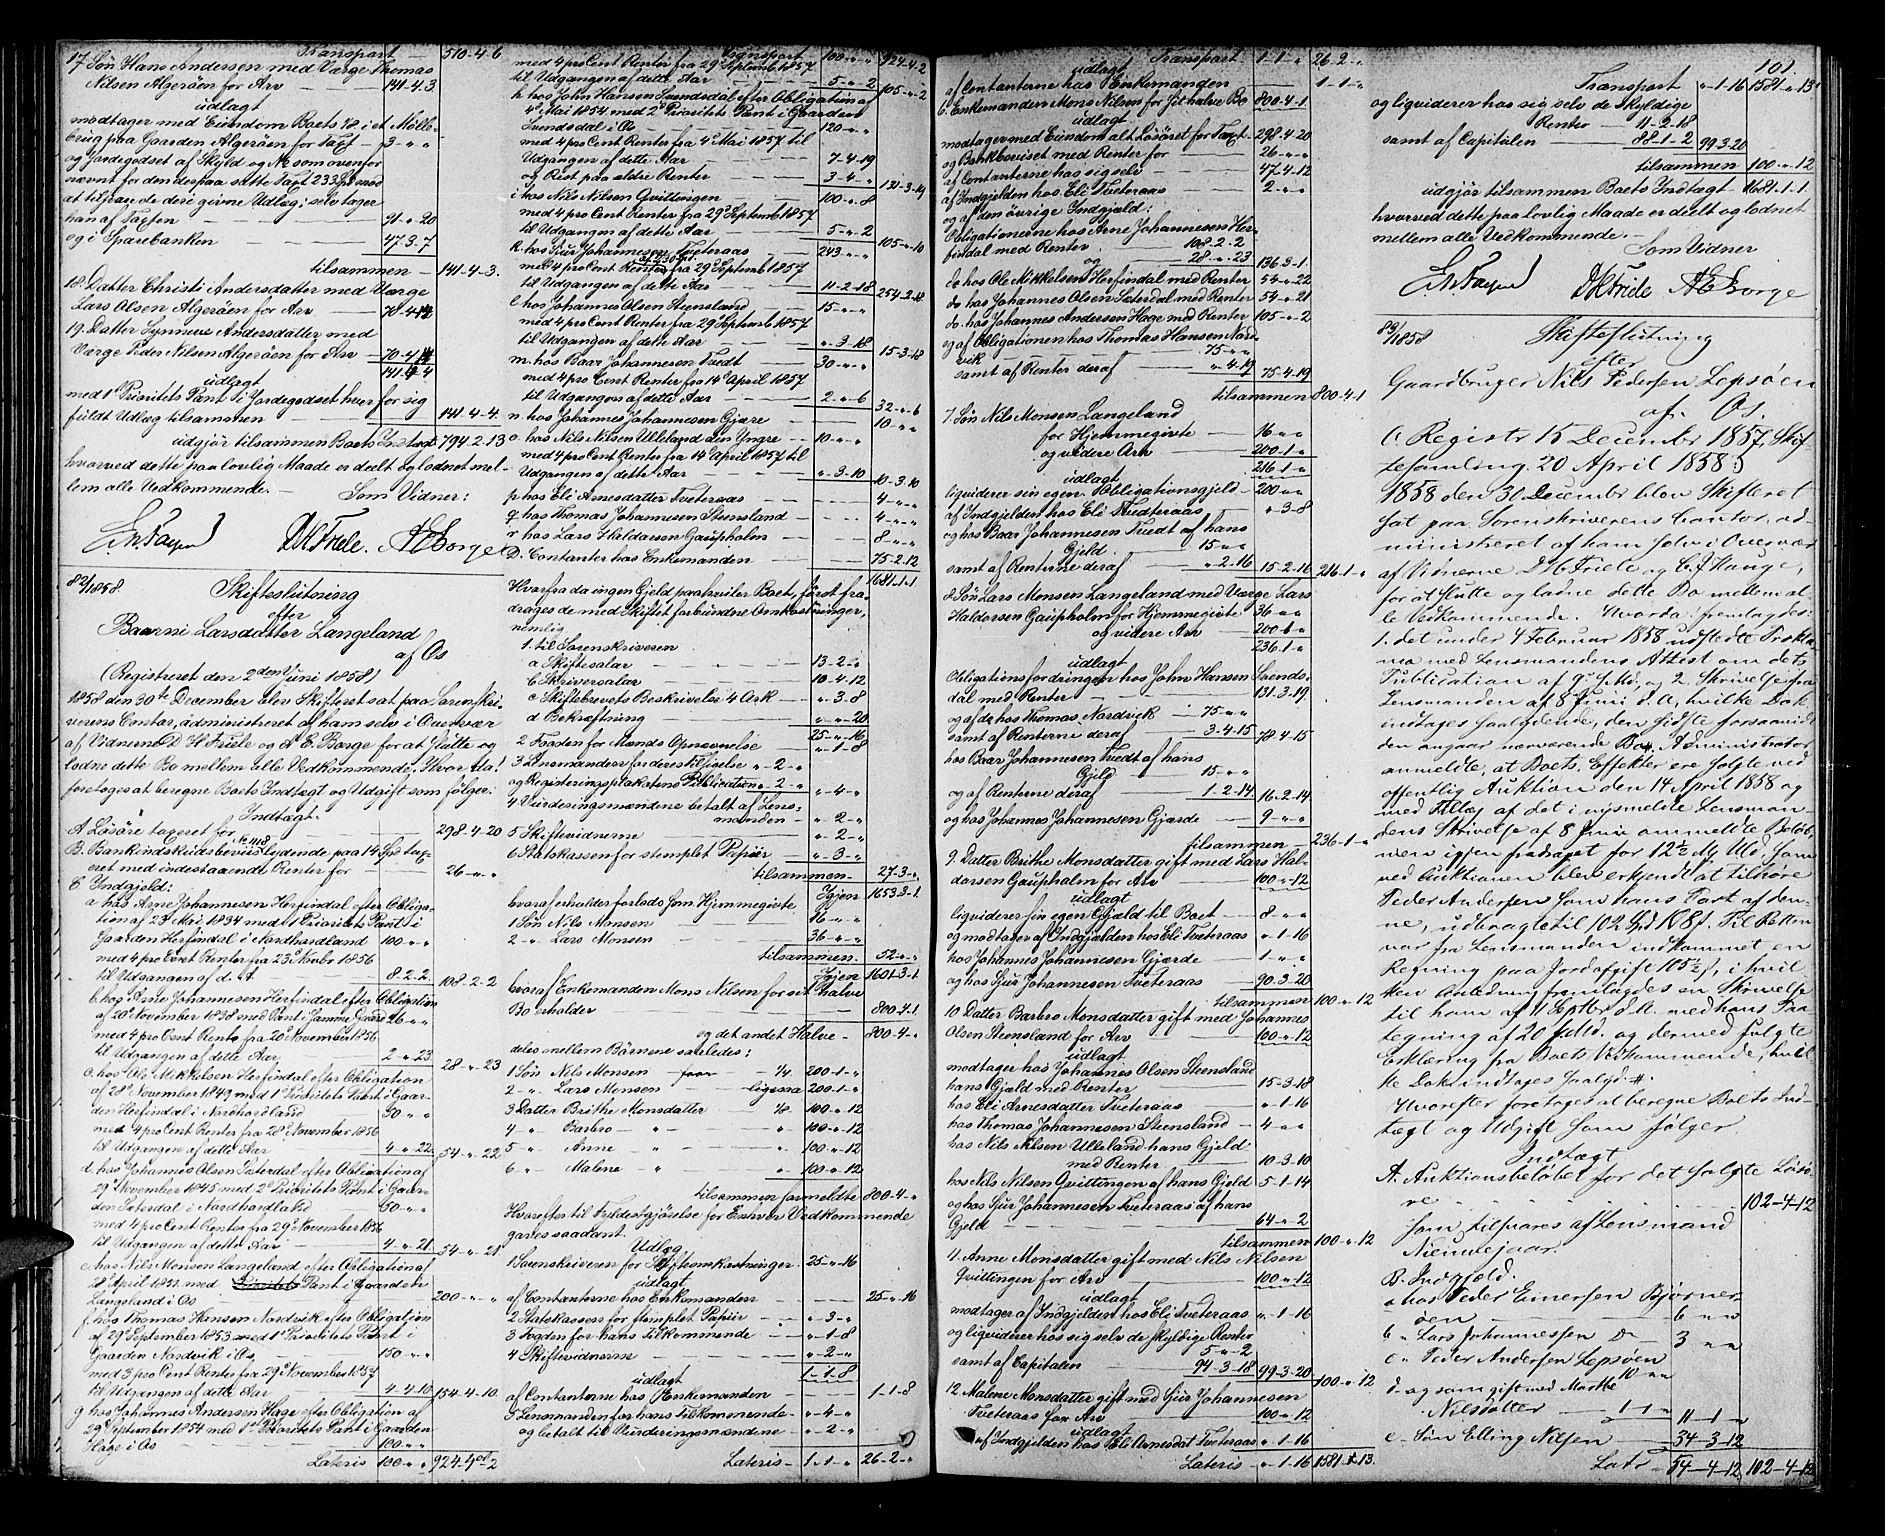 Transport — 510-4-6
17. Søn Hans Andersen med Værge Thomas
Nilsen Algerøen for Arv — 141-4-3
udlagt
modtager med Eiendom Boets ⅛ i et Mølle-
brug paa Gaarden Algerøen for Taxt — 3 " "
og Jordegodset af Skyld og No som ovenfor
nævnt for den derpaa satte Taxt 233 Spd mod
at tilsvare de deri givne Udlæg; selv tager
han af Taxten — 91-"-20
og i Sparebanken — 47-3-7
tilsammen — 141-4-3.
18. Datter Christi Andersdatter med Værge
Lars Olsen Algerøen for Arv — 70-4-14
19. Datter Synneve Andersdatter med
Værge Peder Nilsen Algerøen for Arv — 70-4-14
141-4-4
udlagt
med 1 Prioritets Pant i Jordegodset hver for sig
fuldt Udlæg tilsammen — 141-4-4.
udgjør tilsammen Boets Indtægt 794-2-13
hvorved dette paa lovlig Maade er deelt og lodnet mel-
lem alle Vedkommende. — Som Vidner:
DHFriele. AEBorge
82/1858. Skifteslutning
efter
Baarni Larsdatter Langeland
af Os
(Registreret den 2den Juni 1858)
1858 den 30te December blev Skifteret sat paa Sorenskri-
verens Contor, administreret af ham selv i Overvær
af Vidnerne D H Friele og A. E. Borge for at slutte og
lodne dette Bo mellem alle Vedkommende. Hvor da
foretoges at beregne Boets Indtægt og Udgift som følger:
Indtægt.
A. Løsøre taxeret for — 298-4-20
B. Bankindskudsbeviis No 1118 lydende paa 14 Spd tax-
eret med indestaaende Renter for — 26-"-"
C. Indgjeld:
a hos Arne Johannesen Herfindal efter Obliga-
tion af 23 Mai 1834 med 1 Prioritets Pant i
Gaarden Herfindal i Nordhordland 100-"-"
med 4 pro Cent Renter fra 23 Novbr 1856
til Udgangen af d. A — 8-2-2 108-2-2
b. hos Arne Johannesen Herfindal efter Obligation
af 20 November 1838 med Pant i samme Gaard 26-"-"
med 4 pro Cent Rente fra 20 November 1856
til Udgangen af dette Aar — 2-"-23 28-"-23
c. hos Ole Mikkelsen Herfindal efter Obligation
af 28 November 1849 med 1 Prioritets Pant i Gaar-
den Herfindal i Nordhordland — 50-"-"
med 4 pro Cent Renter fra 28 November 1856
til Udgangen af dette Aar — 4-"-22 54-"-22
d. hos Johannes Olsen Sæterdal efter Obligation af
29 November 1845 med 2 Prioritets Pant i Gaar-
den Sæterdal i Nordhordland — 50-"-"
med 4 pro Cent Renter fra 29 November 1856
til Udgangen af dette Aar — 4-"-21 54-"-21
e. hos Nils Monsen Langeland efter Obligation af
28 April 1852 med Pant i Gaarden
Langeland i Os — 200-"-"
f. hos Thomas Hansen Nordvik efter Obligation
af 29 September 1853 med 1 Prioritets Pant i
Gaarden Nordvik i Os — 150-"-"
med 3 pro Cent Renter fra 29 November 1857
til Udgangen af dette Aar — 4-4-10 154-4-10
g. hos Johannes Andersen Hage efter Obligation af
29 September 1854 med 1 Prioritets Pant i Gaarden
Hage i Os — 100-"-"
Lateris 100-"-" 924-4-2
Transport 100-"-" 924-4-2
med 4 pro Cent Renter fra 29 Septemb 1857
til Udgangen af dette Aar — 5-"-2 105-"-2
h. hos John Hansen Svendsdal efter Obligation af
4 Mai 1854 med 2 Prioritets Pant i Gaarden
Svendsdal i Os — 120-"-"
med 4 pro Cent Renter fra 4 Mai 1857 til
Udgangen af dette Aar — 7-4-19
og Rest paa ældre Renter — 3-4-" 131-3-19
i hos Nils Nilsen Qvittingen — 100-"-8
med 4 pro Cent Renter fra 29 Septemb 1857
til Udgangen af dette Aar — 5-"-2 105-"-10
k. hos Sjur Johannesen Tveteraas — 243-"-"
med 4 pro Cent Renter fra 29 Septemb 1857
til Udgangen af dette Aar — 11-2-18 254-2-18
l. hos Johannes Olsen Stensland — 15-"-"
med 4 pro Cent Renter fra 29 Septemb 1857
til Udgangen af dette Aar — "-3-18 15-3-18
m. hos Baar Johannesen Tvedt — 30-"-"
med 4 pro Cent Renter fra 14 April 1857
til Udgangen af dette Aar — 2-"-6 32-"-6
n. hos Johannes Johannesen Gjære — 10-"-"
o. hos Nils Nilsen Ulleland den Yngre — 10-"-"
med 4 pro Cent Renter fra 14 April 1857 til
Udgangen af dette Aar — "-3-10 10-3-10
p. hos Eli Arnesdatter Tveteraas — 4-"-"
q. hos Thomas Johannesen Steensland — 4-"-"
r hos Lars Haldorsen Gaupholm — 8-"-"
D. Contanter hos Enkemanden — 75-2-12
1681-1-1
Hvorfra da ingen Gjeld paahviler Boet, først fra-
drages de med Skiftet forbundne Omkostninger,
nemlig
1. til Sorenskriveren
a Skiftesalær — 13-2-"
b Skriversalær — 10-4-12
c Skiftebrevets Beskrivelse 4 Ark — "-3-8
d Bekræftning — "-"-20
25-"-16
2 Fogden for Mænds Opnævnelse "-1-8
3 Lensmanden for deres Tilsigelse — "-2-"
og Registeringsplakatens Publication "-2-" "-4-"
4 Vurderingsmændene betalt af Lens-
manden — "-2-"
5 Skiftevidnerne — "-2-"
6 Statskassen for stemplet Papiir — "-3-"
tilsammen — 27-3-"
Igjen 1653-3-1
hvoraf erholder forlods som Hjemmegivte
1 Søn Nils Monsen — 16-"-"
2 " Lars Monsen — 36-"-"
tilsammen. 52-"-"
Igjen 1601-3-1
hvoraf Enkemanden Mons Nilsen for sit halve
Bo erholder — 800-4-1
og det andet Halve — 800-4-"
deles mellem Børnene saaledes:
1 Søn Nils Monsen — faar — ¼ 200-1-"
2 " Lars Monsen — ligesaa 200-1-"
3 Datter Brithe Monsdatter — ⅛ 100-"-12
4 " Barbro — " — " 100-"-12
5 " Anne — " — " 100-"-12
6 " Malene — " — " 100-"-12
tilsammen formeldte 800-4-"
Hvorefter til Fyldestgjørelse for Enhver Vedkommende
gjøres saadant
Udlæg
1 Sorenskriveren for Skifteomkostninger 25-"-16
udlagt
af Contanterne hos Enkemanden — 25-"-16
2 Statskassen for stemplet Papiir — "-3-"
3 Fogden for hans Tilkommende — "-1-8
4 Skiftevidnerne — "-2-"
1-1-8
udlagt
af Contanterne hos Enkemanden — 1-1-8
5 Lensmanden for hans Tilkommende — "-4-"
og betalt til Vurderingsmændene — "-2-"
Lateris — 1-1-" 26-2-"
Transport 1-1-" 26-2-"
udlagt
af Contanterne hos Enkemanden — 1-1-"
6. Enkemanden Mons Nilsen for sit halve Bo 800-4-1
udlagt
modtager med Eiendom alt Løsøret for Taxt 298-4-20
og Bankbeviset med Renter for — 26-"-"
af Contanterne hos sig selv — 47-4-12
af Indgjelden hos Eli Tveteraas — 2-"-"
og af den øvrige Indgjeld:
Obligationerne hos Arne Johannesen Her-
findal med Renter — 108-2-2
og — 28-"-23 136-3-1
do hos Ole Mikkelsen Herfindal med Renter 54-"-22
do hos Johannes Olsen Sæterdal med Renter 54-"-21
do hos Johannes Andersen Hage med Renter 105-"-2
og af Obligationen hos Thomas Hansen Nord-
vik — 75-"-"
samt af Renter deraf — "-4-19 75-4-19
tilsammen 800-4-1
7. Søn Nils Monsen Langeland
for Hjemmegivte — 16-"-"
og videre Arv — 200-1-"
216-1-"
udlagt
liquiderer sin egen Obligationsgjeld — 200-"-"
af Indgjelden hos Eli Tvedteraas — "-3-8
og hos Baar Johannesen Tvedt af hans
Gjeld — 15-"-"
samt af Renterne deraf — "-2-16 15-2-16 216-1-"
8 Søn Lars Monsen Langeland med Værge Lars
Haldorsen Gaupholm for Hjemmegivte 36-"-"
og videre Arv — 200-1-"
236-1-"
udlagt
Obligationsfordringen hos John Hansen Svends-
dal med Renter — 131-3-19
og af do hos Thomas Nordvick — 75-"-"
samt af Renterne deraf — 3-4-15 78-4-15
hos Baar Johannesen Tvedt af hans
Gjeld — 15-"-"
og af Renterne deraf — 1-2-14 16-2-14
og hos Johannes Johannesen Gjærde — 9-"-"
tilsammen 236-1-"
9. Datter Brithe Monsdatter gift med Lars Hal-
dorsen Gaupholm for Arv — 100-"-12
udlagt
liquiderer sin egen Gjæld til Boet — 8-"-"
og modtager af Indgjelden hos Eli Tveteraas "-1-16
hos Johannes Johannesen Gjærde — 1-"-"
og hos Sjur Johannesen Tveteraas — 90-3-20
tilsammen 100-"-12
10 Datter Barbro Monsdatter gift med Johannes
Olsen Steensland for Arv — 100-"-12
udlagt
modtager hos Johannes Olsen Steensland
hans Gjæld med Renter — 15-3-18
hos Eli Arnesdatter Tveteraas — "-1-16
hos Thomas Johannesen Stensland — 4-"-"
hos Nils Nilsen Ulleland hans Gjeld
med Renter — 10-3-10
hos Nils Nilsen Qvittingen af hans Gjeld — 5-1-14
og hos Sjur Johannesen Tveteraas af hans
Gjeld — 64-"-2
tilsammen 100-"-12
11. Anne Monsdatter gift med Nils Nilsen
Qvittingen for Arv — 100-"-12
udlagt
modtager af Indgjelden hos Eli Tveteraas "-1-16
og liquiderer hos sig selv de skyldige Renter
5-"-2
samt af Capitalen — 94-3-18 99-3-20
100-"-12
12 Malene Monsdatter gift med Sjur Johannesen
Tveteraas for Arv — 100-"-12
udlagt
af Indgjelden hos Eli Arnesdat Tveteraas "-1-16
Lateris — "-1-16 1581-"-13.
101.
Transport "-1-16 1581-"-13
og liquiderer hos sig selv de skyldige
Renter — 11-2-18
samt af Capitalen — 88-1-2 99-3-20
tilsammen 100-"-12
udgjør tilsammen Boets Indtægt 1681-1-1
hvorved dette paa lovlig Maade er deelt og lodnet
mellem alle Vedkommende. —
Som Vidner
DHFriele AEBorge
83/1858 Skifteslutning
efter
Gaardbruger Nils Pedersen Lepsøen
af Os.
(Registr 15 December 1857, Skif-
tesamling 20 April 1858.)
1858 den 30 Decembr blev Skifteret
sat paa Sorenskriverens Contor, ad-
ministreret af ham selv i Overvær
af Vidnerne D H Friele og C. J. Hauge,
for at slutte og lodne dette Bo mellem al-
le Vedkommende. Hvorda fremlagdes:
1. det under 4 Februar 1858 udstedte Prokla-
ma med Lensmandens Attest om dets
Publication af 9 s. Md, og 2. Skrivelse fra
Lensmanden af 8 Juni d. A, hvilke Dok.
indtages saalydende, den sidste forsaavidt
den angaar nærværende Bo. Administrator
anmeldte, at Boets Effekter ere solgte ved
offentlig Auktion den 14 April 1858 og
med Tillæg af det i nysmeldte Lensman-
dens Skrivelse af 8 Juni anmeldte Beløb,
men igjen fradraget for 12½ Mk Uld, som
ved Auktionen blev erkjendt at tilhøre
Peder Andersen som hans Part af den-
ne, udbragte til 102 Spd 108 s. Til Retten
var fra Lensmanden indkommet en
Regning paa Jordafgift 105½ s, i hvil-
ken Anledning fremlagdes en Skrivelse
til ham af 11 Septbr d. A. med hans Paa-
tegning af 20 s. Md. og dermed fulgte
Erklæring fra Boets Vedkommende, hvil-
ke Dok. indtages saalyd.
Hvorefter foretoges at beregne Boets Ind-
tægt og Udgift som følger
Indtægt
A. Auktionsbeløbet for det solgte Løsø-
re — 102-4-12
som tilsvares af Lensmand
B. Indgjæld.
a hos Peder Einersen Bjørner-
øen — 6 " "
b " Lars Johannessen Do — 3 " "
c " Peder Andersen Lepsøen
10 " "
d og som gift med Marthe
Nilsdatter — 1-1-" 11-1-"
e — Søn Elling Nilsen — 34-3-12
Latr — 54-4-12 102-4-12